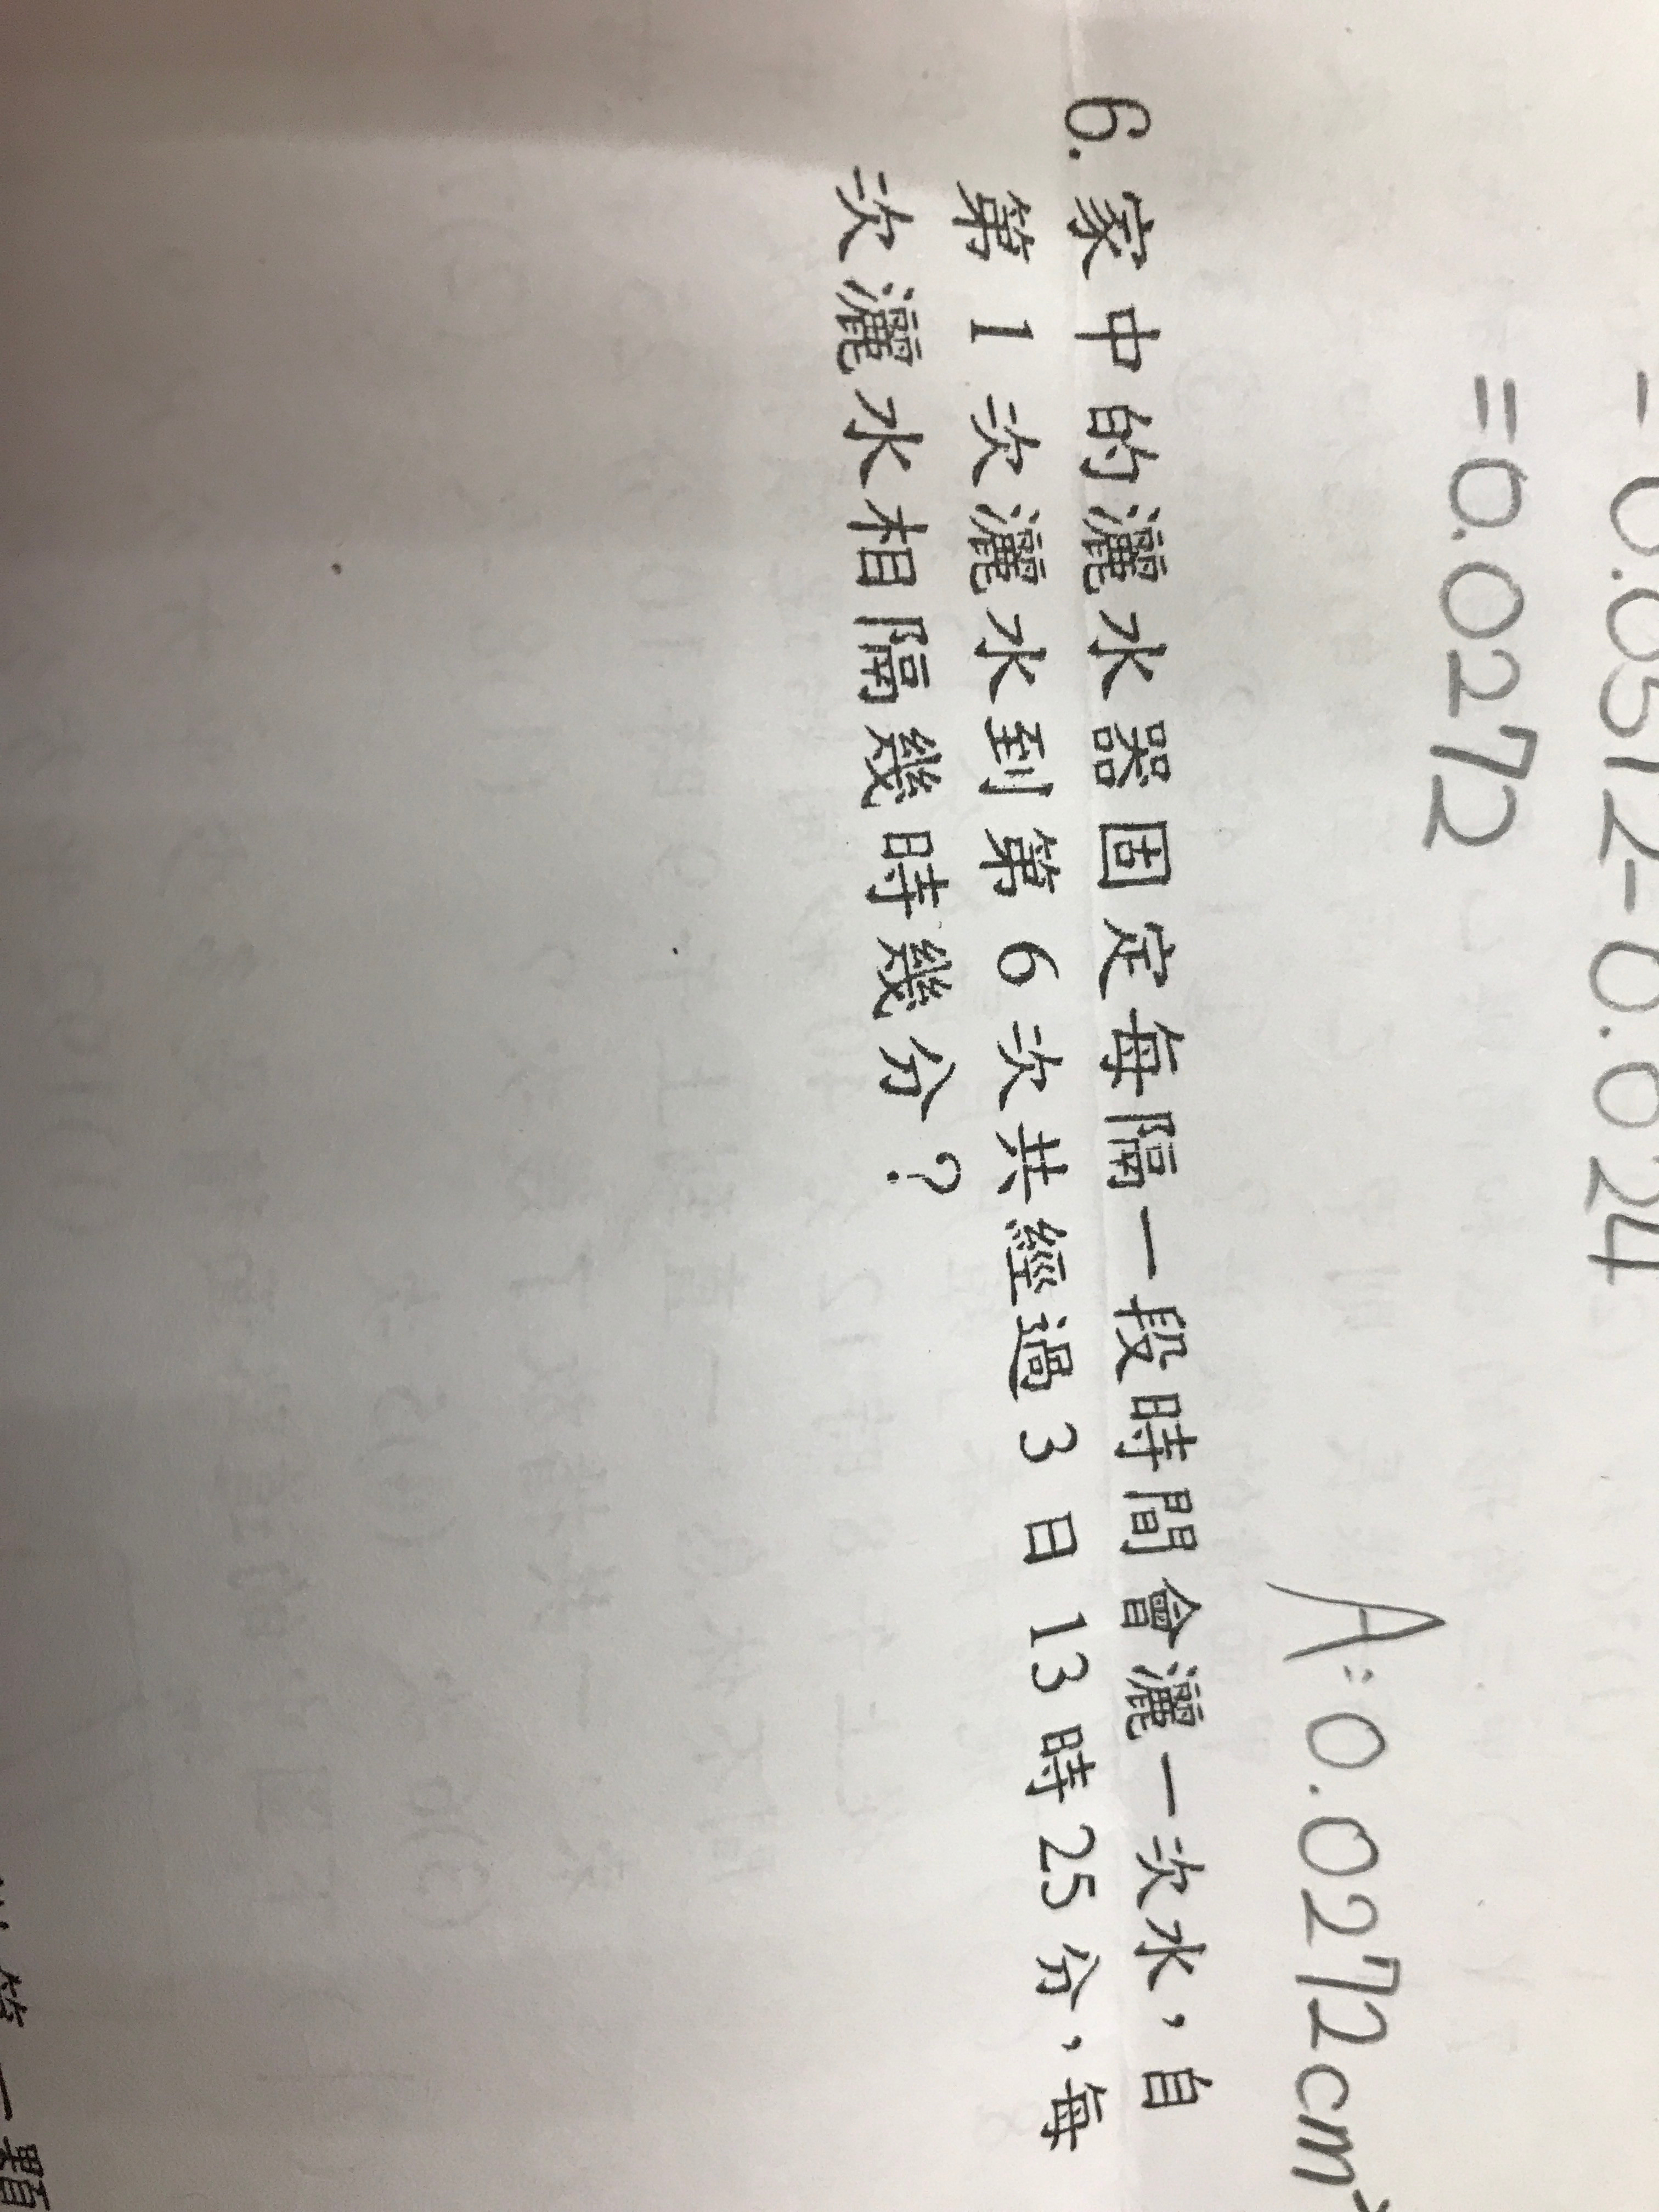 =0.0272
A:0.0272cm
6. 家中的灑水器固定每隔一段時間會灑一次水，自
第1次灑水到第6次共經過3日13時25分，每
次灑水相隔幾時幾分？